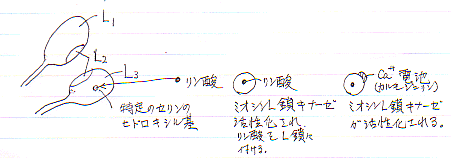 L₁
L₂
L₃
特定のセリンの
ヒドロキシル基
リン酸
リン酸
ミオシンL鎖キナーゼ
活性化され
リン酸をL鎖に
付ける。
Ca⁺電池
(カルモジュリン)
ミオシンL鎖キナーゼ
が活性化される。